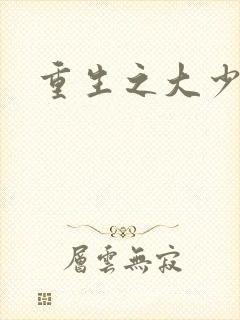 重生之大少
層雲無寂